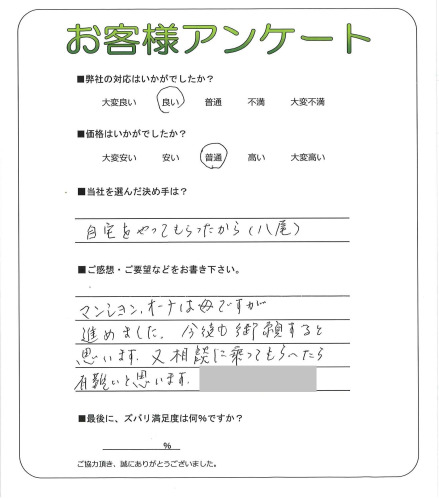 お客様アンケート
■弊社の対応はいかがでしたか？
大変良い 良い 普通 不満 大変不満
■価格はいかがでしたか？
大変安い 安い 普通 高い 大変高い
■当社を選んだ決め手は？
自宅をやってもらったから（八尾）
■ご感想・ご要望などをお書き下さい。
マンション、オーナは母ですが
進めました。今後も御願すると
思います。又相談に乗ってもらへたら
有難いと思います。
■最後に、ズバリ満足度は何%ですか？
%
ご協力頂き、誠にありがとうございました。